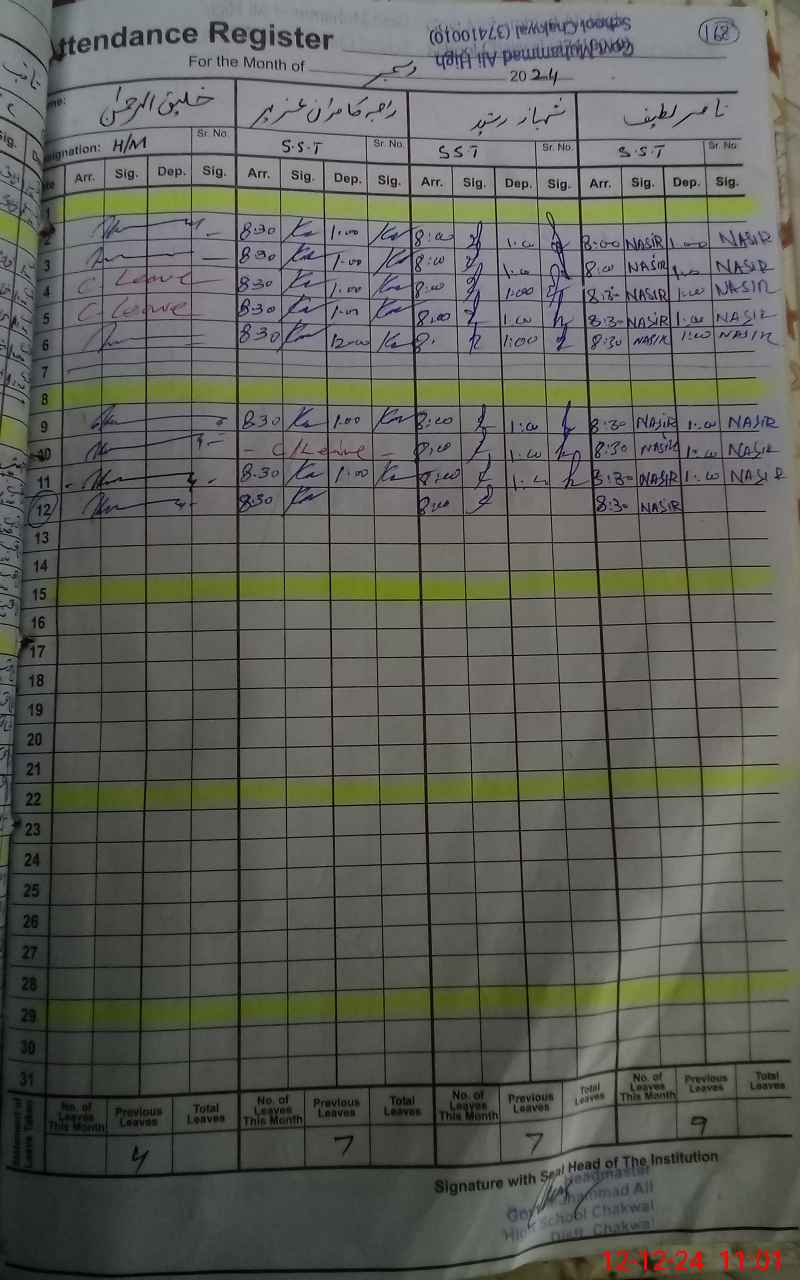 ttendance Register
Govt Muhammad Ali High
School Chakwal (37410010)
168
For the Month of دسمبر 2024
me: خلیق الرحمٰن راجہ کامران عزیز شہباز رشید ناصر لطیف
signation: H/M Sr. No. S.S.T Sr. No. SST Sr. No. S.S.T Sr. No.
te Arr. Sig. Dep. Sig. Arr. Sig. Dep. Sig. Arr. Sig. Dep. Sig. Arr. Sig. Dep. Sig.
1
2 8:30 1:00 8:00 1:00 8:00 NASIR 1:00 NASIR
3 8:30 1:00 8:00 1:00 8:00 NASIR 1:00 NASIR
4 C Leave 8:30 1:00 8:00 1:00 8:30 NASIR 1:00 NASIR
5 C Leave 8:30 1:00 8:00 1:00 8:30 NASIR 1:00 NASIR
6 8:30 12:00 8: 1:00 8:30 NASIR 1:00 NASIR
7
8
9 8:30 1:00 8:00 1:00 8:30 NASIR 1:00 NASIR
10 - C/Leave - 8:00 1:00 8:30 NASIR 1:00 NASIR
11 8:30 1:00 8:00 1:00 8:30 NASIR 1:00 NASIR
12 8:30 8:00 8:30 NASIR
13
14
15
16
17
18
19
20
21
22
23
24
25
26
27
28
29
30
31
Statement of Leave Taken No. of Leaves This Month Previous Leaves Total Leaves No. of Leaves This Month Previous Leaves Total Leaves No. of Leaves This Month Previous Leaves Total Leaves No. of Leaves This Month Previous Leaves Total Leaves
4 7 7 9
Signature with Seal Head of The Institution
Headmaster
Govt Muhammad Ali
High School Chakwal
Distt. Chakwal
12-12-24 11:01